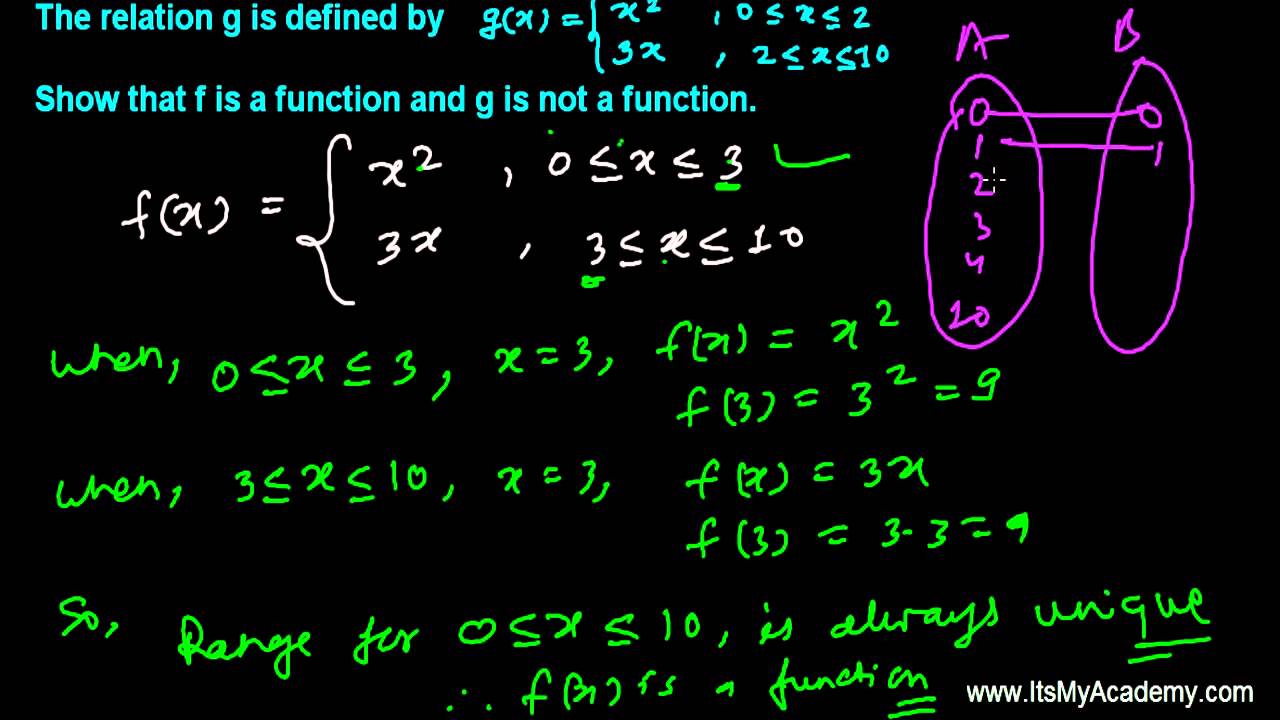 The relation g is defined by g(x) = { x² , 0 ≤ x ≤ 2
3x , 2 ≤ x ≤ 10
Show that f is a function and g is not a function.
f(x) = { x² , 0 ≤ x ≤ 3
3x , 3 ≤ x ≤ 10
when, 0 ≤ x ≤ 3, x = 3, f(x) = x²
f(3) = 3² = 9
when, 3 ≤ x ≤ 10, x = 3, f(x) = 3x
f(3) = 3·3 = 9
So, Range for 0 ≤ x ≤ 10, is always unique
∴ f(x) is a function
A B
0 0
1 1
2
3
4
10
www.ItsMyAcademy.com